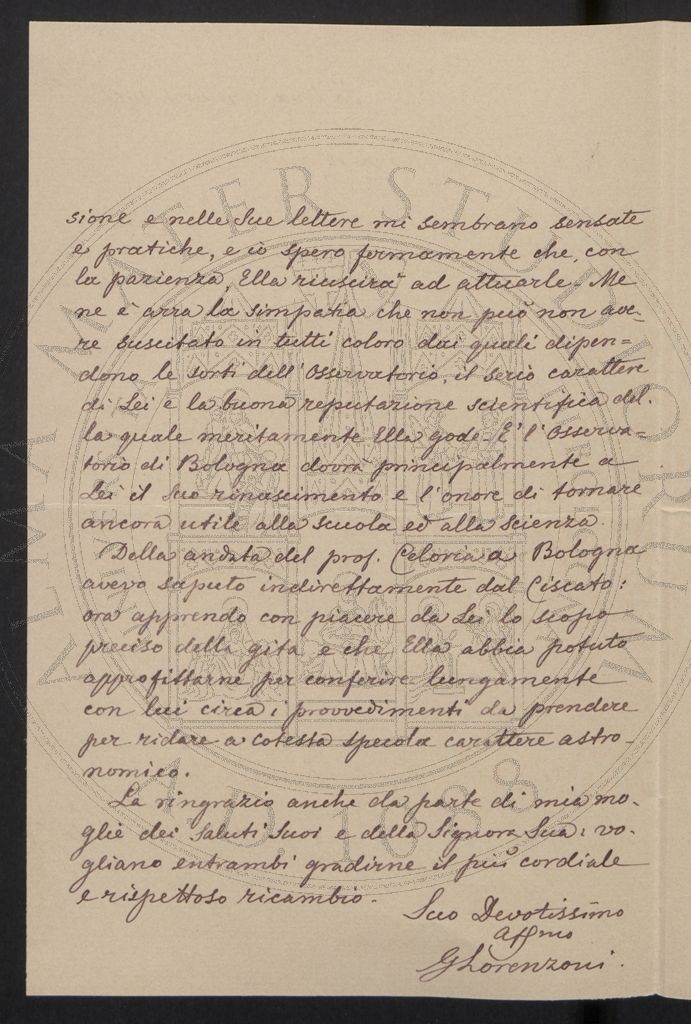 sione e nelle Sue lettere mi sembrano sensate
e pratiche, e io spero fermamente che, con
la pazienza, Ella riuscirà ad attuarle. Me
ne è arra la simpatia che non può non ave-
re suscitato in tutti coloro dai quali dipen=
dono le sorti dell'Osservatorio, il serio carattere
di Lei e la buona reputazione scientifica del-
la quale meritamente Ella gode. E l'Osserva-
torio di Bologna dovrà principalmente a
Lei il Suo rinascimento e l'onore di tornare
ancora utile alla scuola ed alla scienza.
Della andata del prof. Celoria a Bologna
avevo saputo indirettamente dal Ciscato:
ora apprendo con piacere da Lei lo scopo
preciso della gita e che Ella abbia potuto
approfittarne per conferire lungamente
con lui circa i provvedimenti da prendere
per ridare a cotesta specola carattere astro-
nomico.
La ringrazio anche da parte di mia mo-
glie dei saluti Suoi e della Signora Sua: vo-
gliano entrambi gradirne il più cordiale
e rispettoso ricambio.
Suo Devotissimo
affmo
GLorenzoni.
ALMA MATER STUDIORUM
A.D. 1088